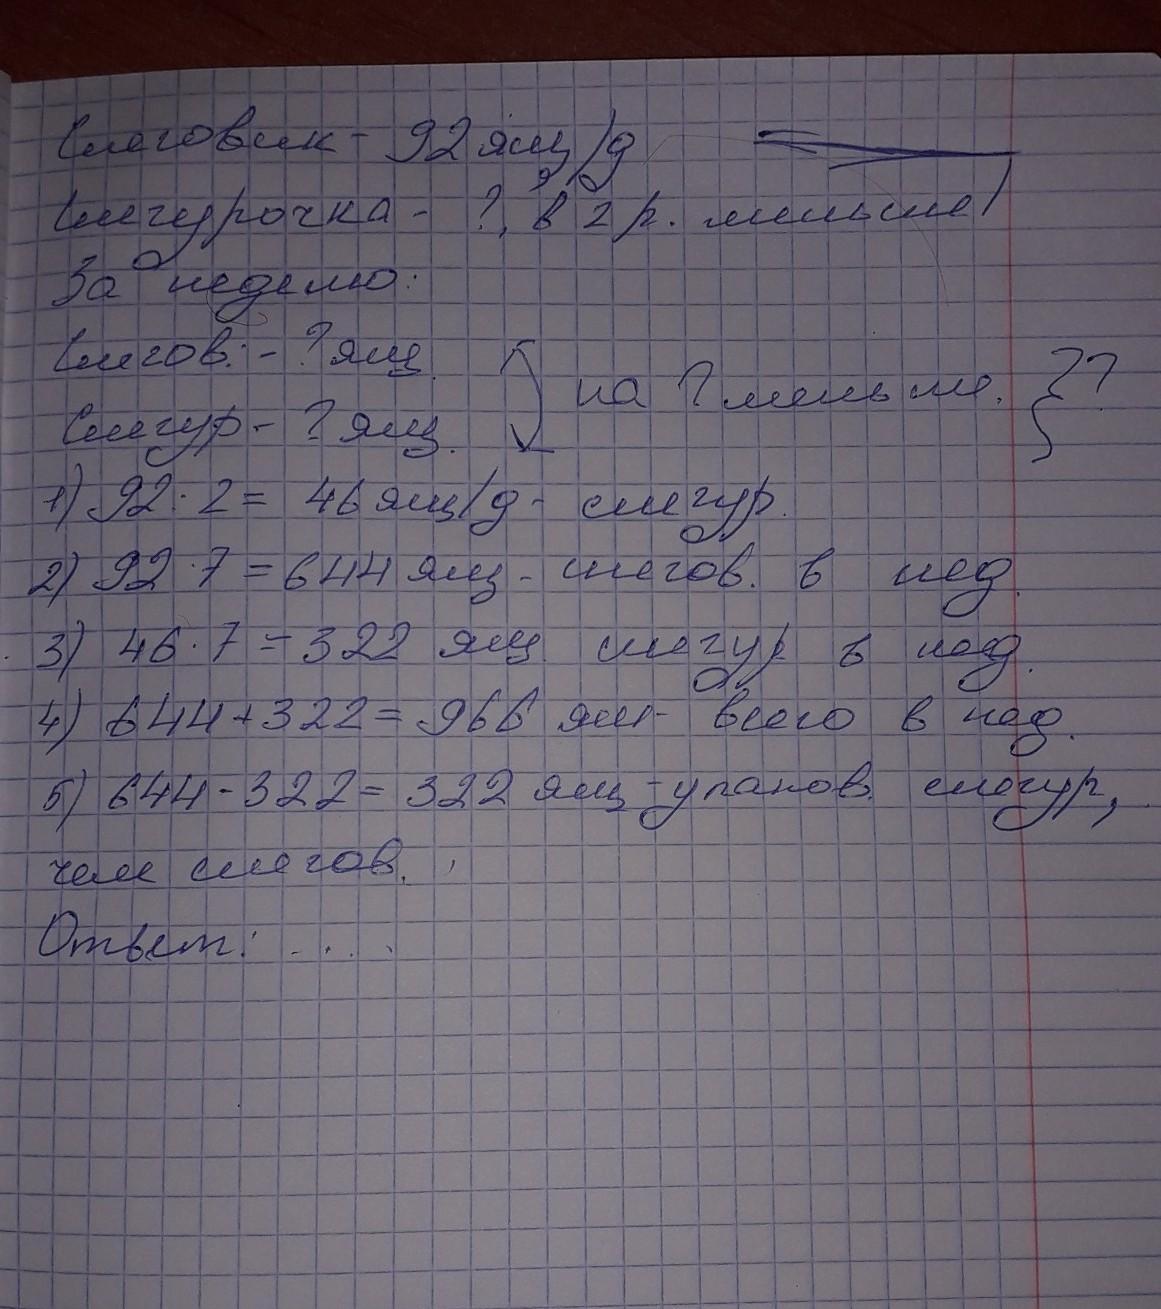 Снеговик - 92 ящ/д
Снегурочка - ?, в 2 р. меньше
За неделю:
Снегов. - ? ящ.
на ? меньше. }?
Снегур - ? ящ.
1) 92 : 2 = 46 ящ/д - снегур.
2) 92 · 7 = 644 ящ - снегов. в нед.
3) 46 · 7 = 322 ящ снегур в нед.
4) 644 + 322 = 966 ящ - всего в нед.
5) 644 - 322 = 322 ящ - упаков. снегур,
чем снегов.
Ответ: ....